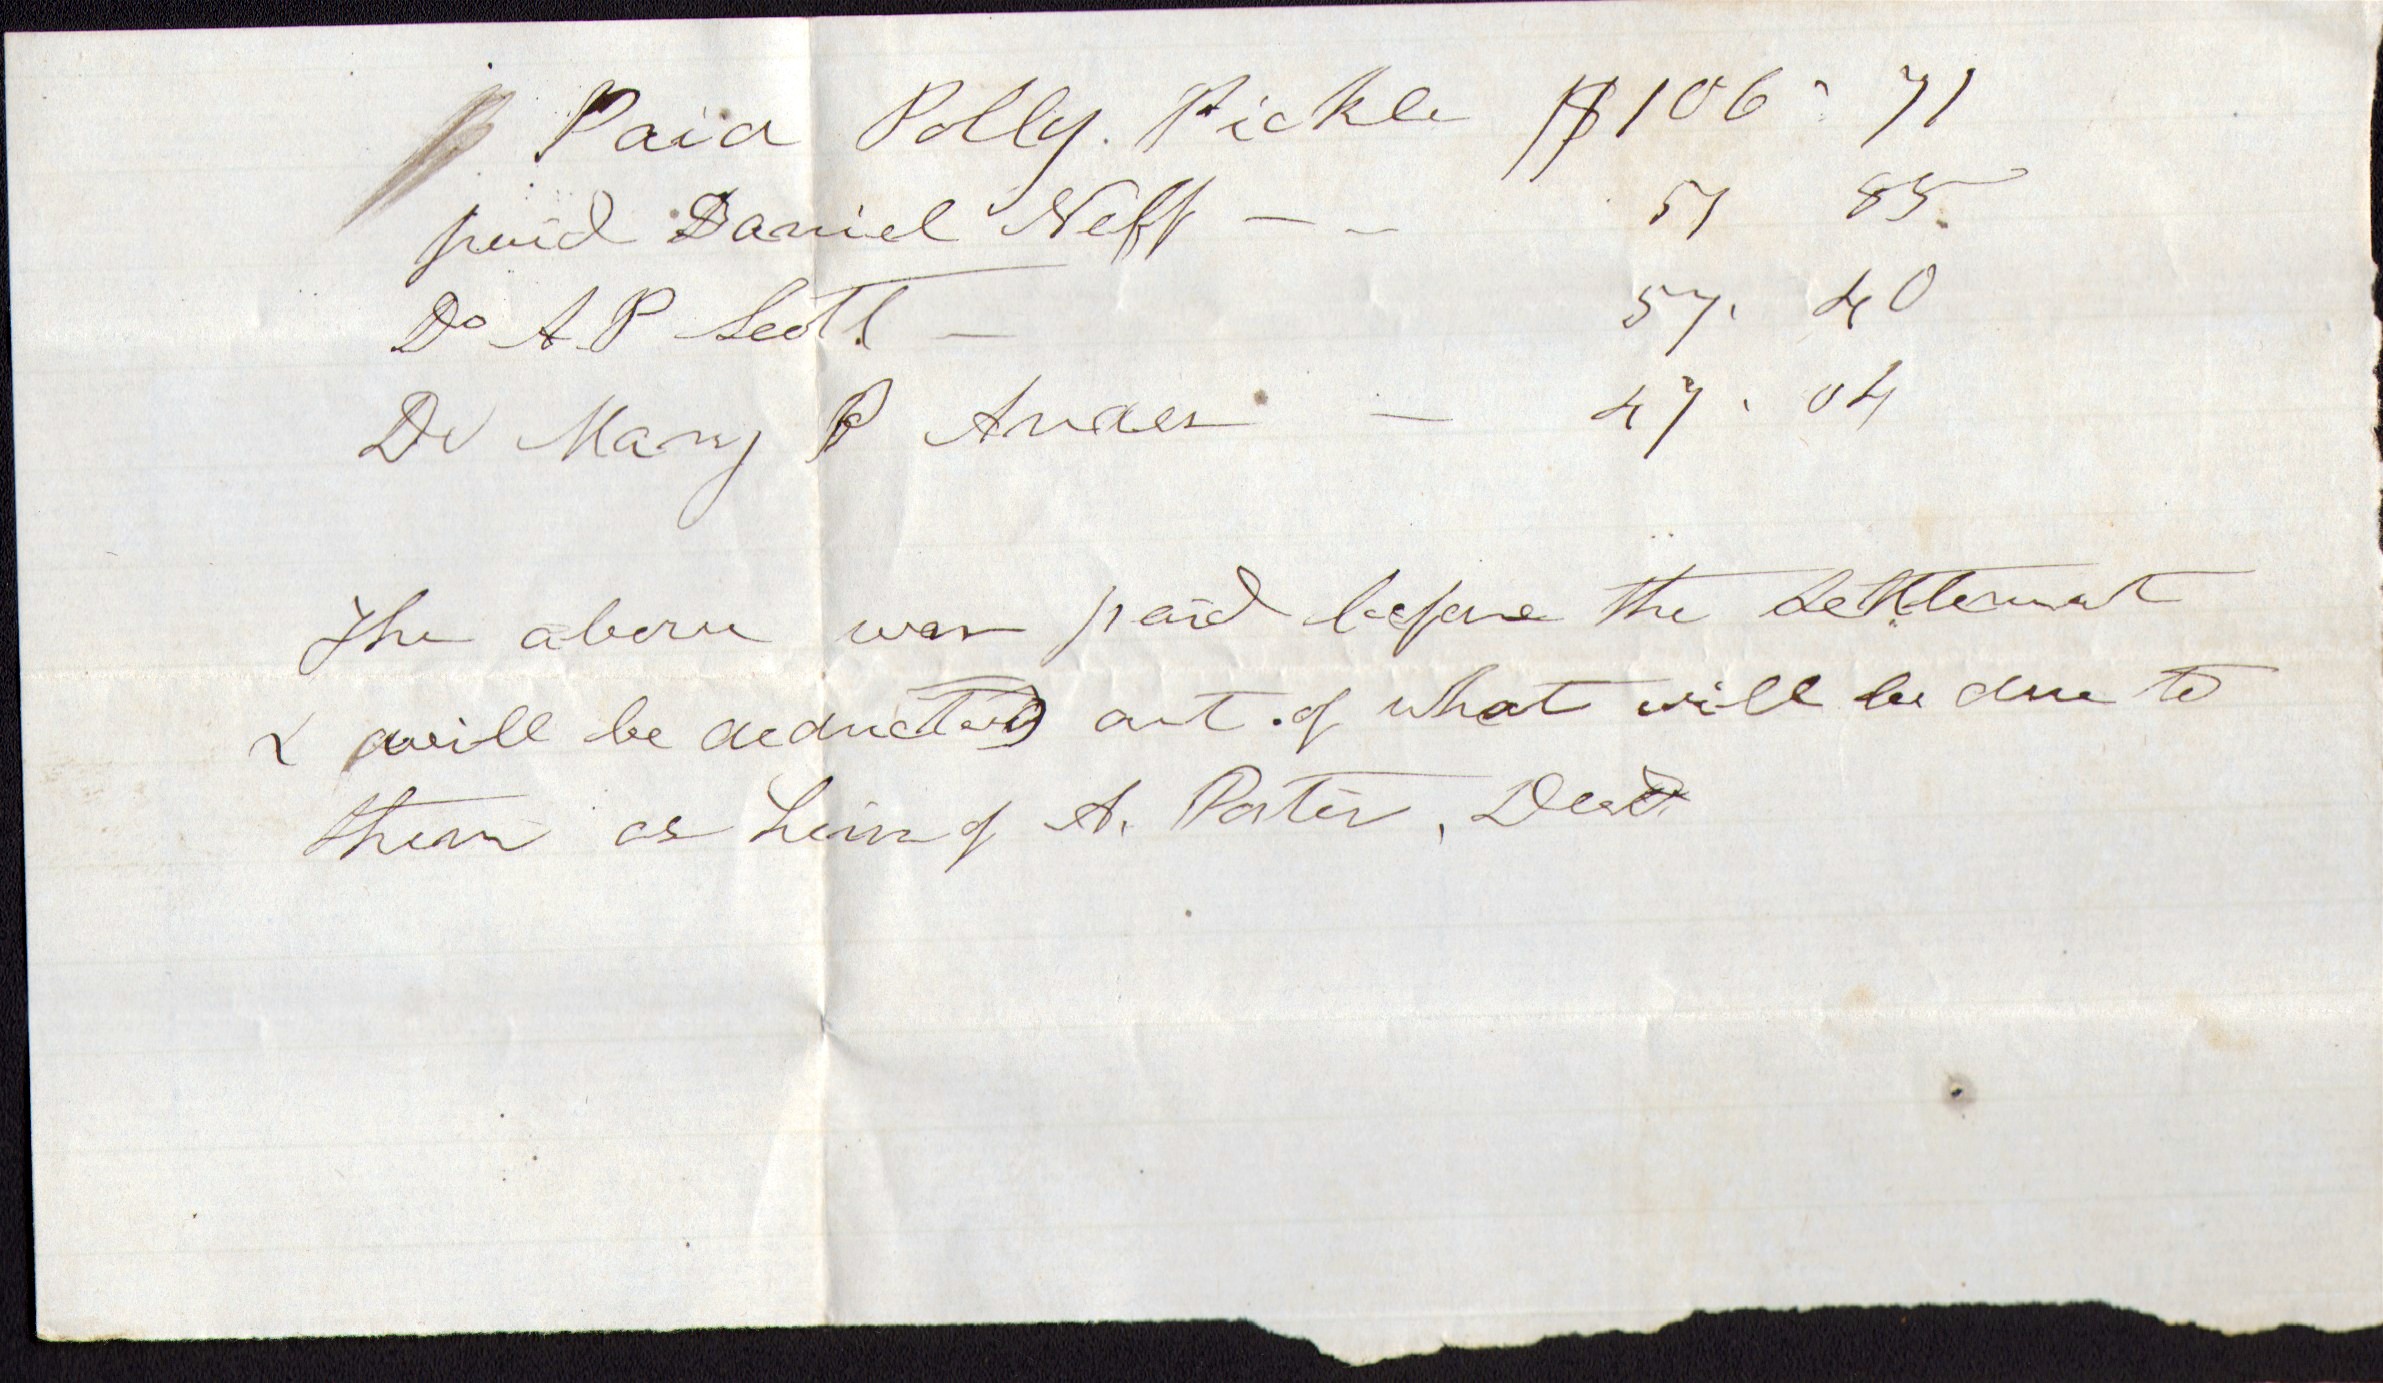 Paid Polly Pickle $106 " 71
paid Daniel Neff — — 51 85
Do A. P Scott — 57. 40
Do Mary P Andes — 47. 04
The above was paid before the settlement
& will be deducted out of what will be due to
them as heirs of A. Porter, Decd